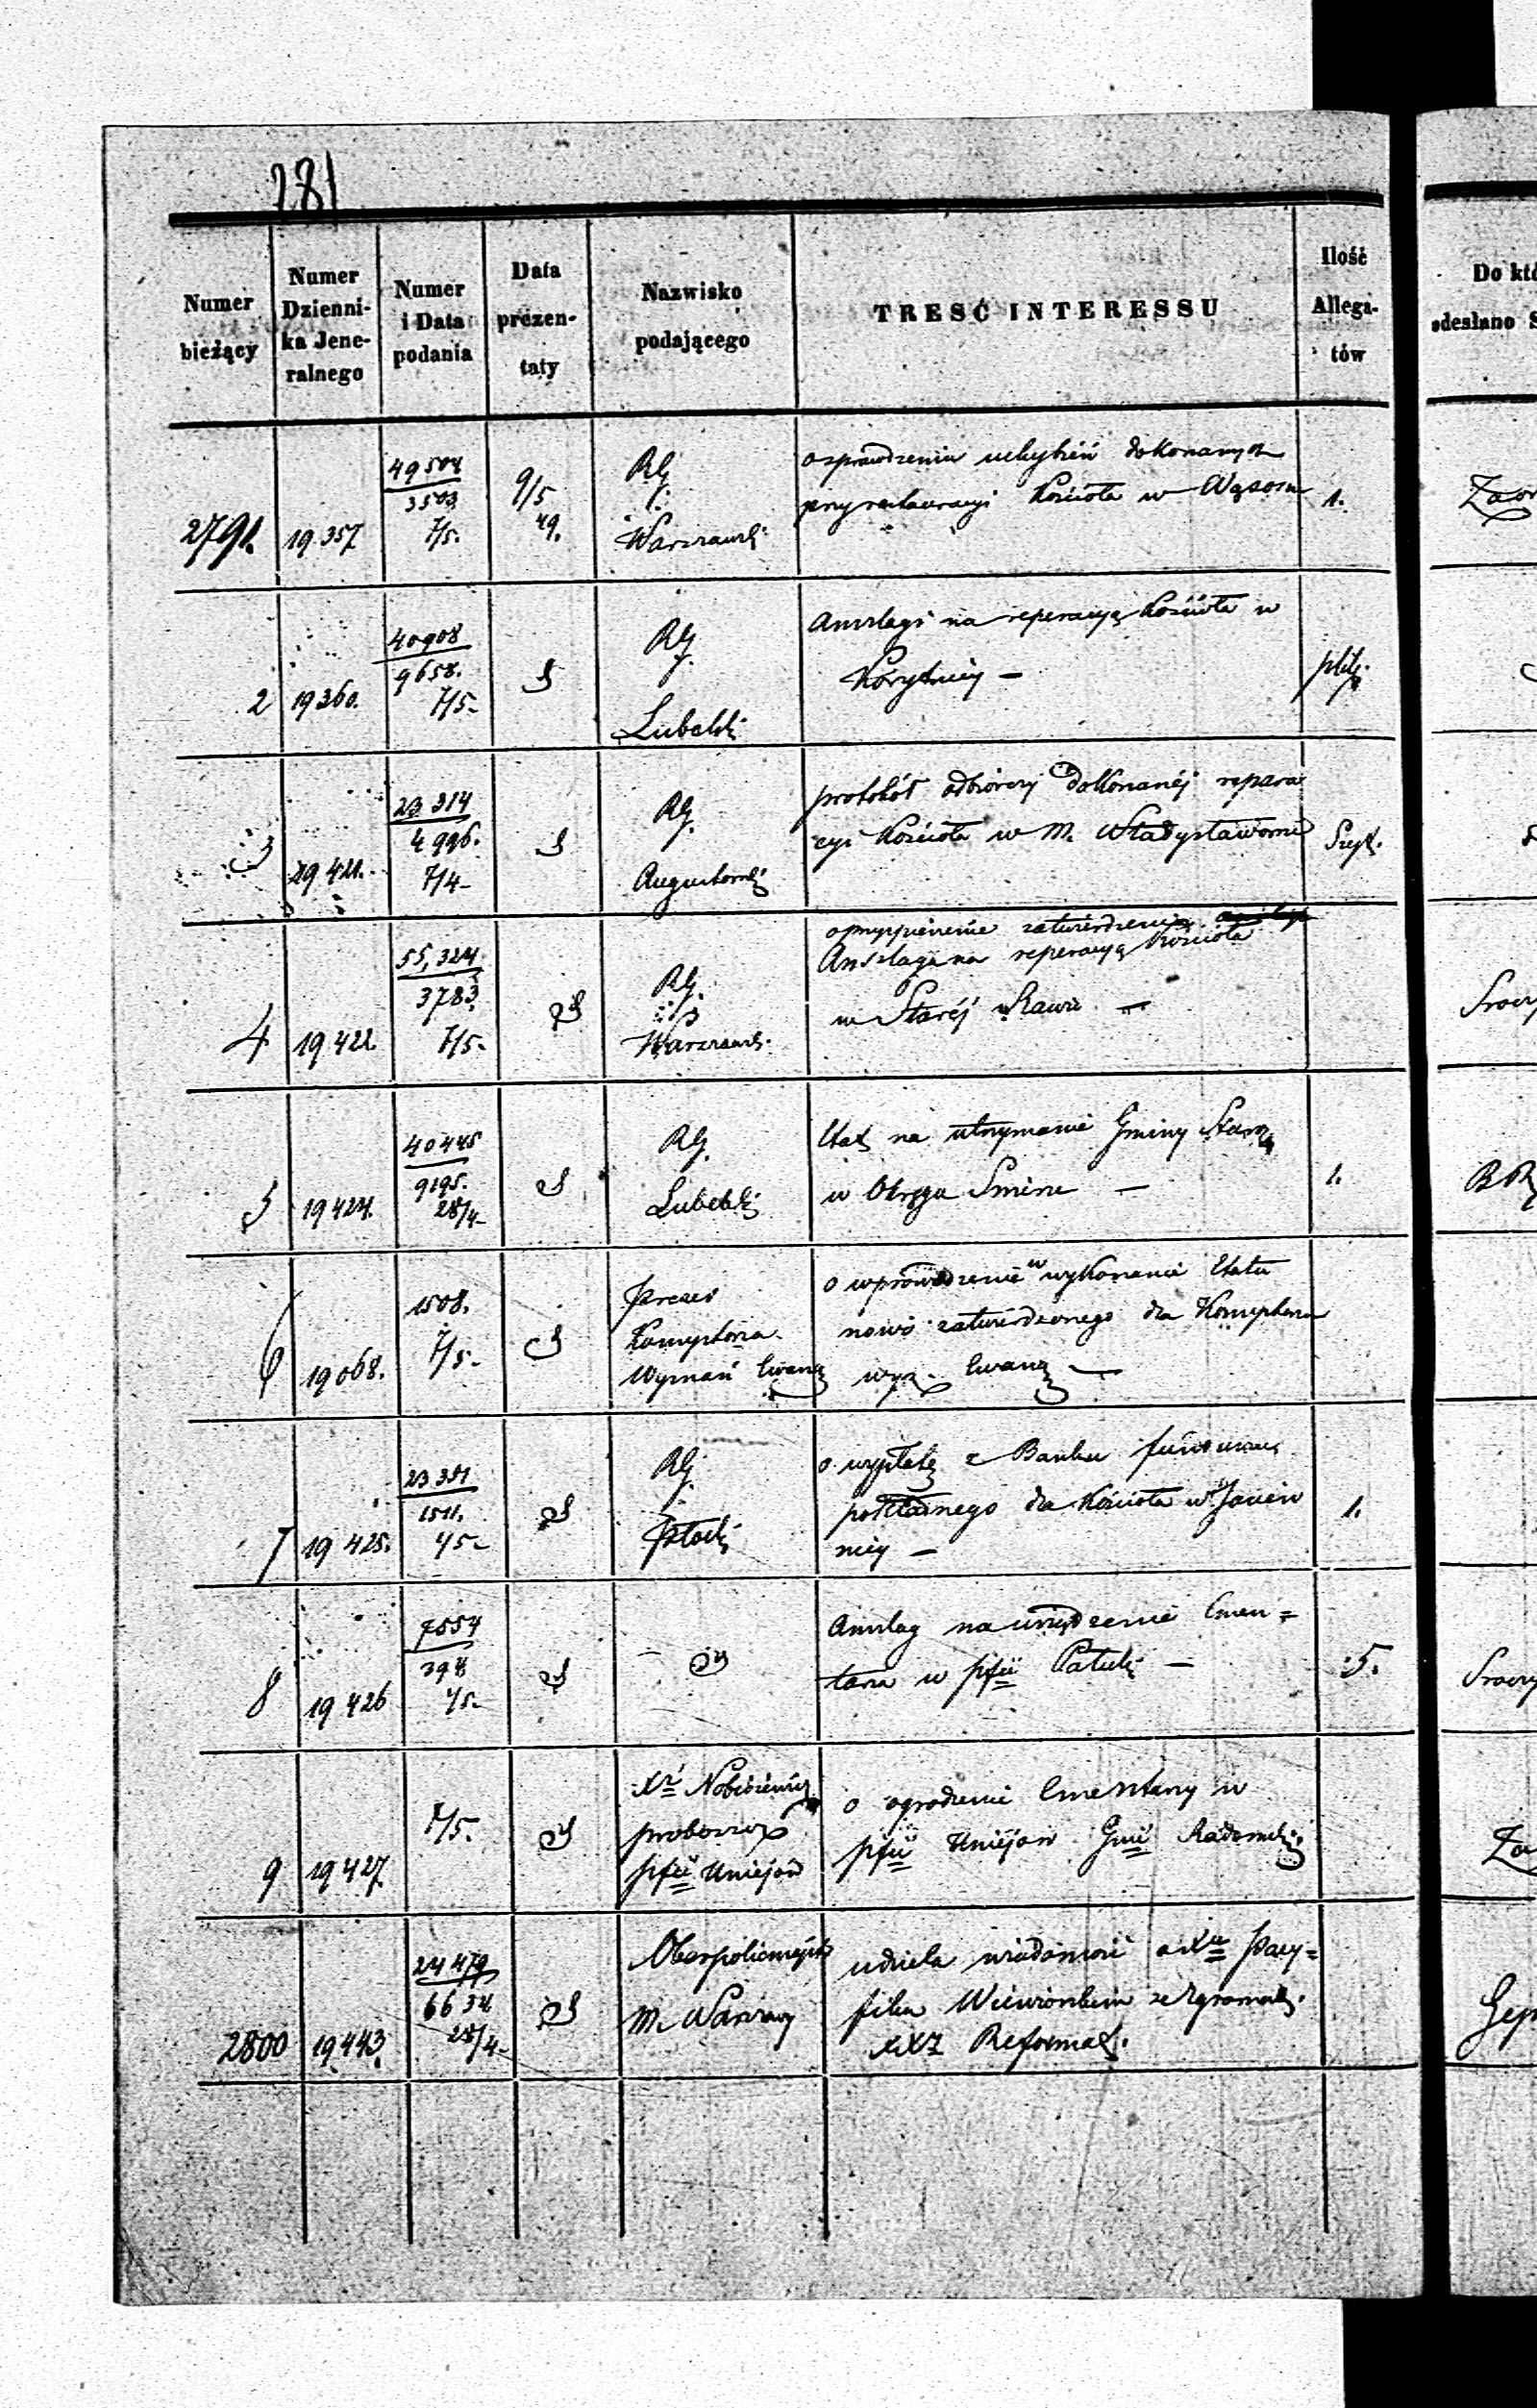 281
Numer
bieżący
Numer
Dzienni-
ka Jene-
ralnego
Numer
i Data
podania
Data
prezen-
taty
Nazwisko
podającego
TRESĆ INTERESSU
Ilość
Allega-
tów
Do któ
odesłano S
2791.
19.357
49504
3503
7/5.
9/5
49.
RG.
Warszawsk.
o sprawdzenie uchybień dokonanych
przy restauracyi Kościoła w Wąsosu
1.
2
19360.
40908
9658.
7/5-
RG.
Lubelski
Anszlagi na reperacyą Kościoła w
Korytnicy —
plik.
3
19421.
23 314
4996.
7/4-
RG.
Augustowski
protokół odbiorczy dokonanéj repara
cyi Kościoła w M. Władysławowie
Szęść.
4
19422.
55,324
3783
7/5-
RG.
Warszawsk.
o przyspieszenie zatwierdzenia
Anszlagu na reperacyą Kościoła
w Staréj Rawie —
5
19424.
40445
9195.
28/4-
RG.
Lubelski
Etat na utrzymanie Gminy Staroz
w Okręgu —
1.
6
19068.
1508.
7/5-
Prezes
Komyptorza
Wyznań Ewang
o wprowadzenie w wykonanie Etatu
nowo zatwierdzonego dla
wyz. Ewang —
7
19425.
23351
1511.
4/5-
RG.
Płocki
o wypłatę z Banku funduszu
pokładnego dla Kościoła w
nicy —
1.
8
19426
7554
394
4/5-
Anszlag na urządzenie Cmen=
tarza w pfii —
5.
9
19427
7/5.
Xdz
proboszcz
pfii Uniejów
o ogrodzenie Cmentarzy w
pfii Uniejów Gnii Radomski
Za
2800
19443
24479
6634
28/4-
Oberpolicmajster
M. Warszawy
udziela wiadomość o Xdzu Pacy=
fiku ze Zgromadz.
XXZ Reformat.